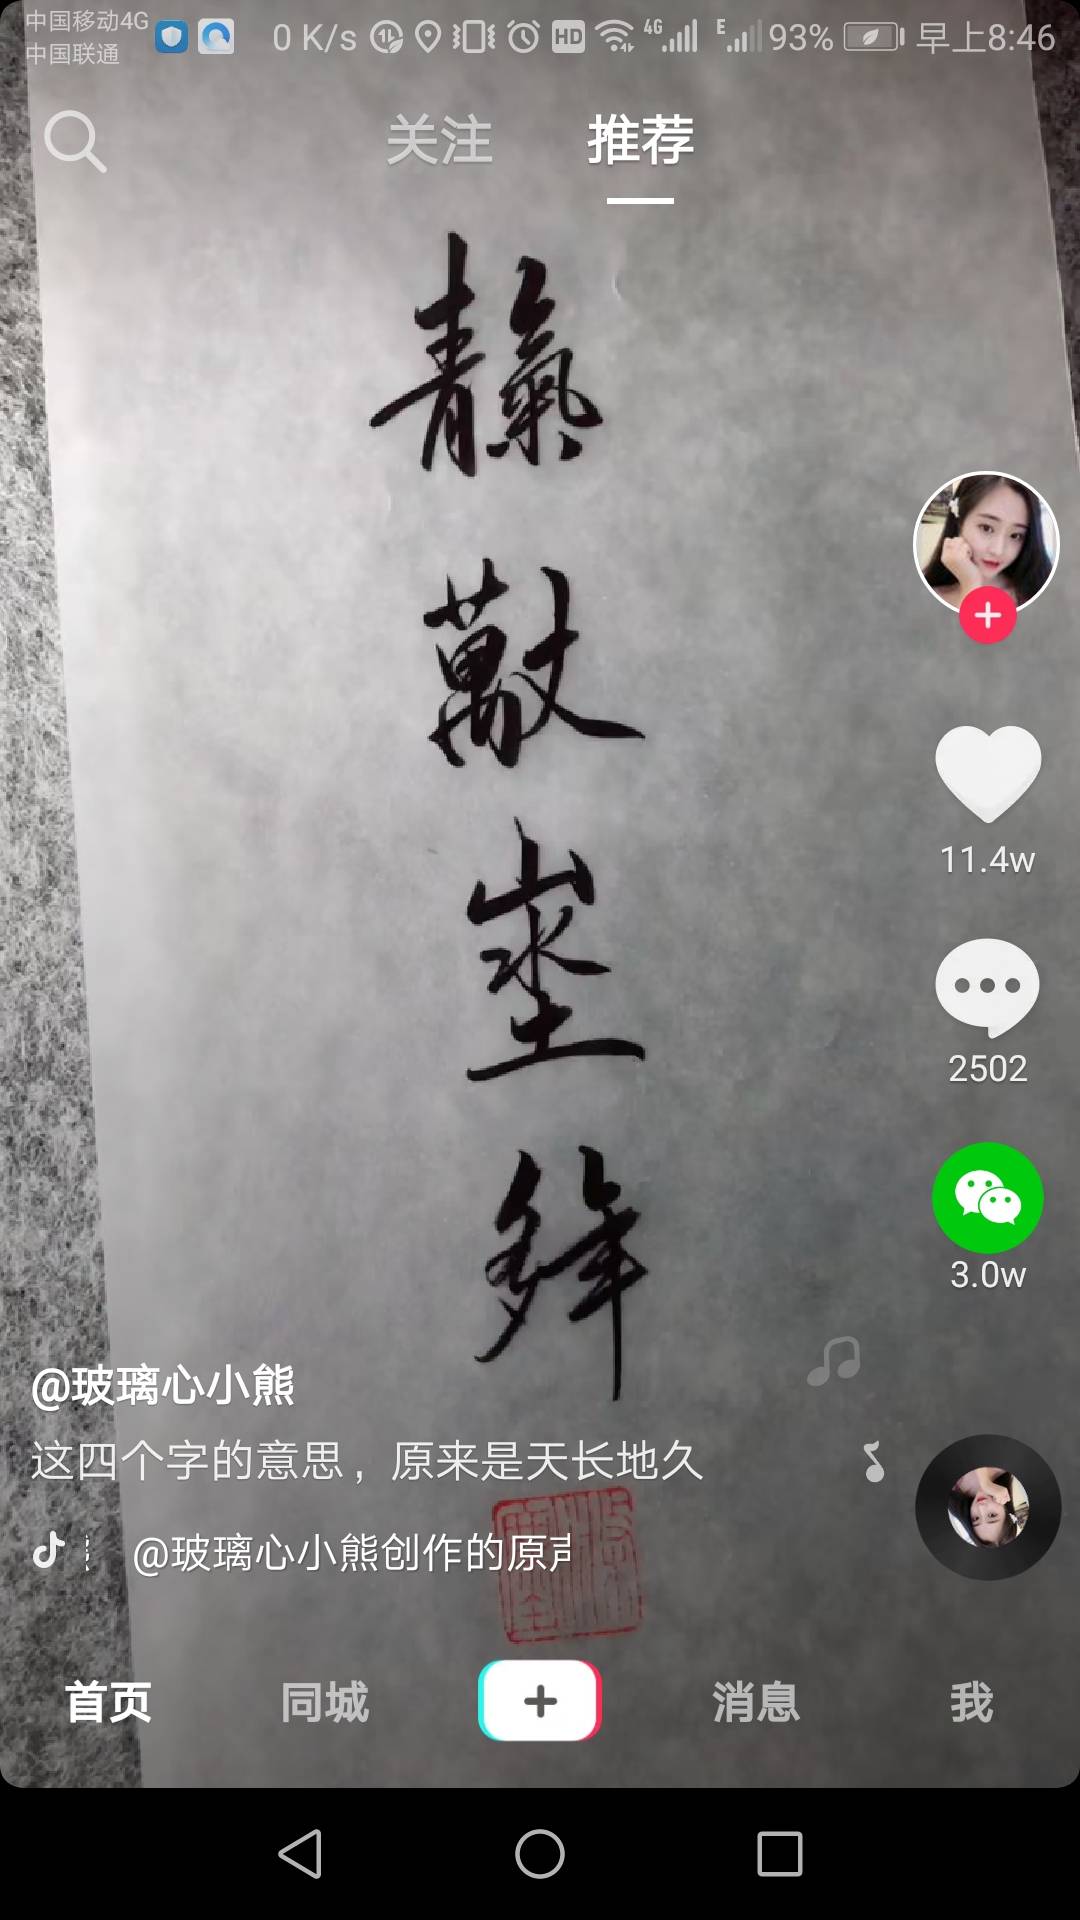 中国移动4G
中国联通
0 K/s
HD
4G
E
93%
早上8:46
关注
推荐
靝
䶮
埊
11.4w
2502
3.0w
@玻璃心小熊
这四个字的意思，原来是天长地久
@玻璃心小熊创作的原声
首页
同城
消息
我